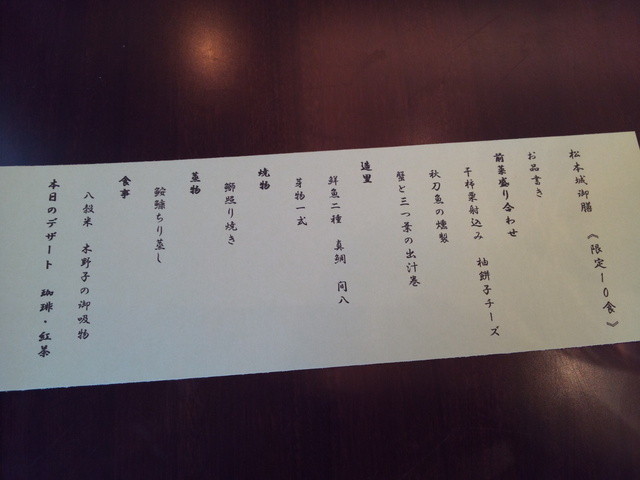 松本城御膳 《限定10食》
お品書き
前菜盛り合わせ
干柿栗射込み 柚餅子チーズ
秋刀魚の燻製
蟹と三つ葉の出汁巻
造里
鮮魚二種 真鯛 間八
芽物一式
焼物
鰤照り焼き
蒸物
鮟鱇ちり蒸し
食事
八穀米 木野子の御吸物
本日のデザート 珈琲・紅茶